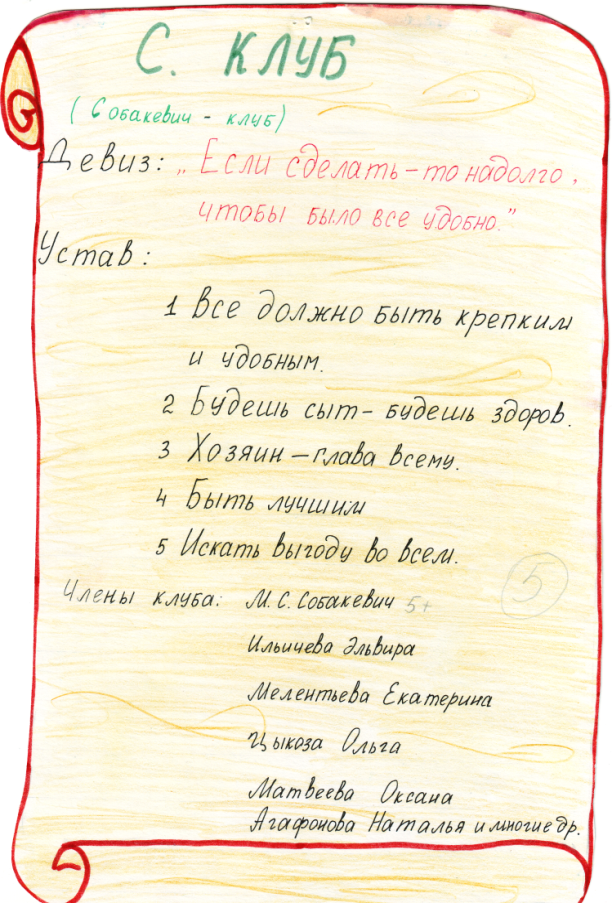 С. КЛУБ
(Собакевич - клуб)
Девиз: „Если сделать - то надолго,
чтобы было все удобно."
Устав:
1 Все должно быть крепким
и удобным.
2 Будешь сыт - будешь здоров.
3 Хозяин - глава всему.
4 Быть лучшим
5 Искать выгоду во всем.
5
Члены клуба: М. С. Собакевич 5+
Ильичева Эльвира
Мелентьева Екатерина
Цыкоза Ольга
Матвеева Оксана
Агафонова Наталья и многие др.